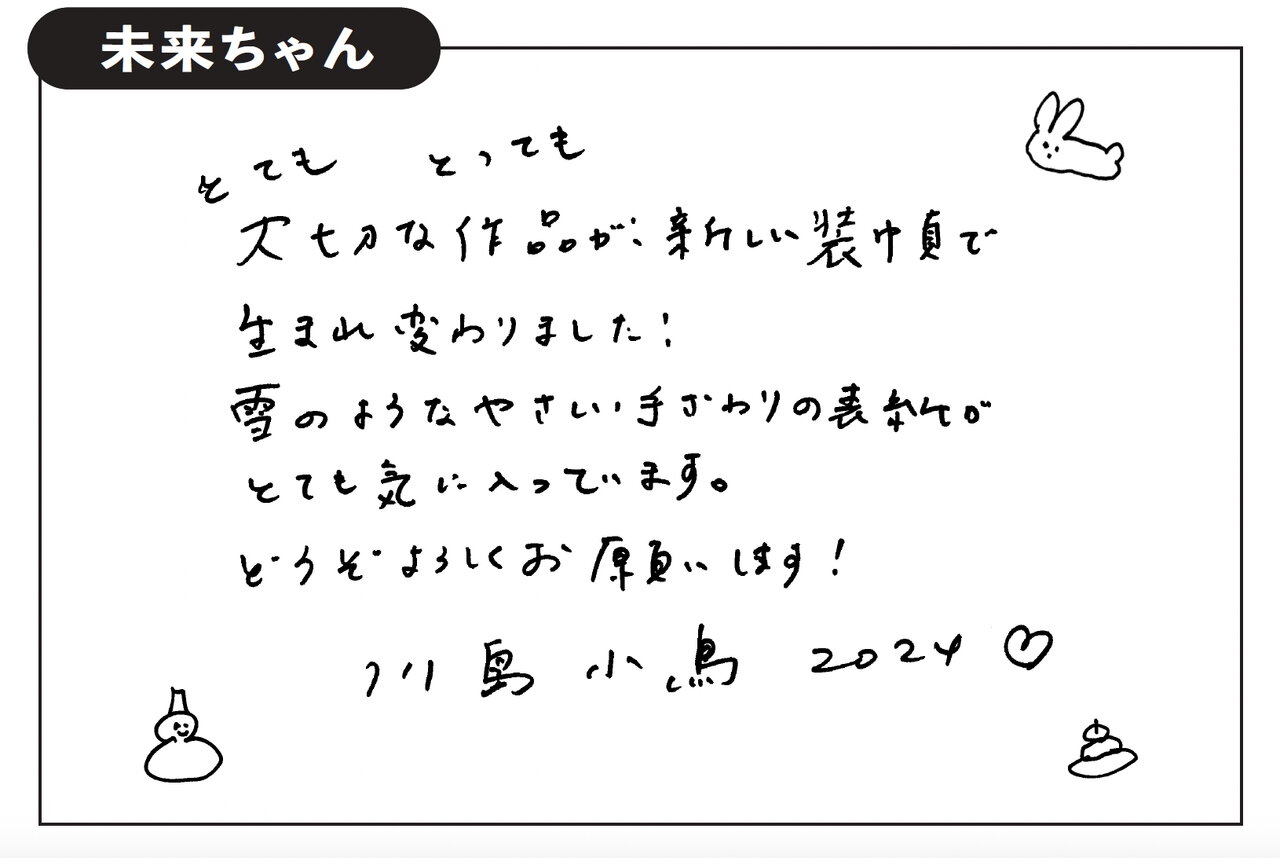 未来ちゃん
とても とっても
大切な作品が、新しい装幀で
生まれ変わりました！
雪のようなやさしい手ざわりの表紙が
とても気に入っています。
どうぞよろしくお願いします！
川島小鳥 2024